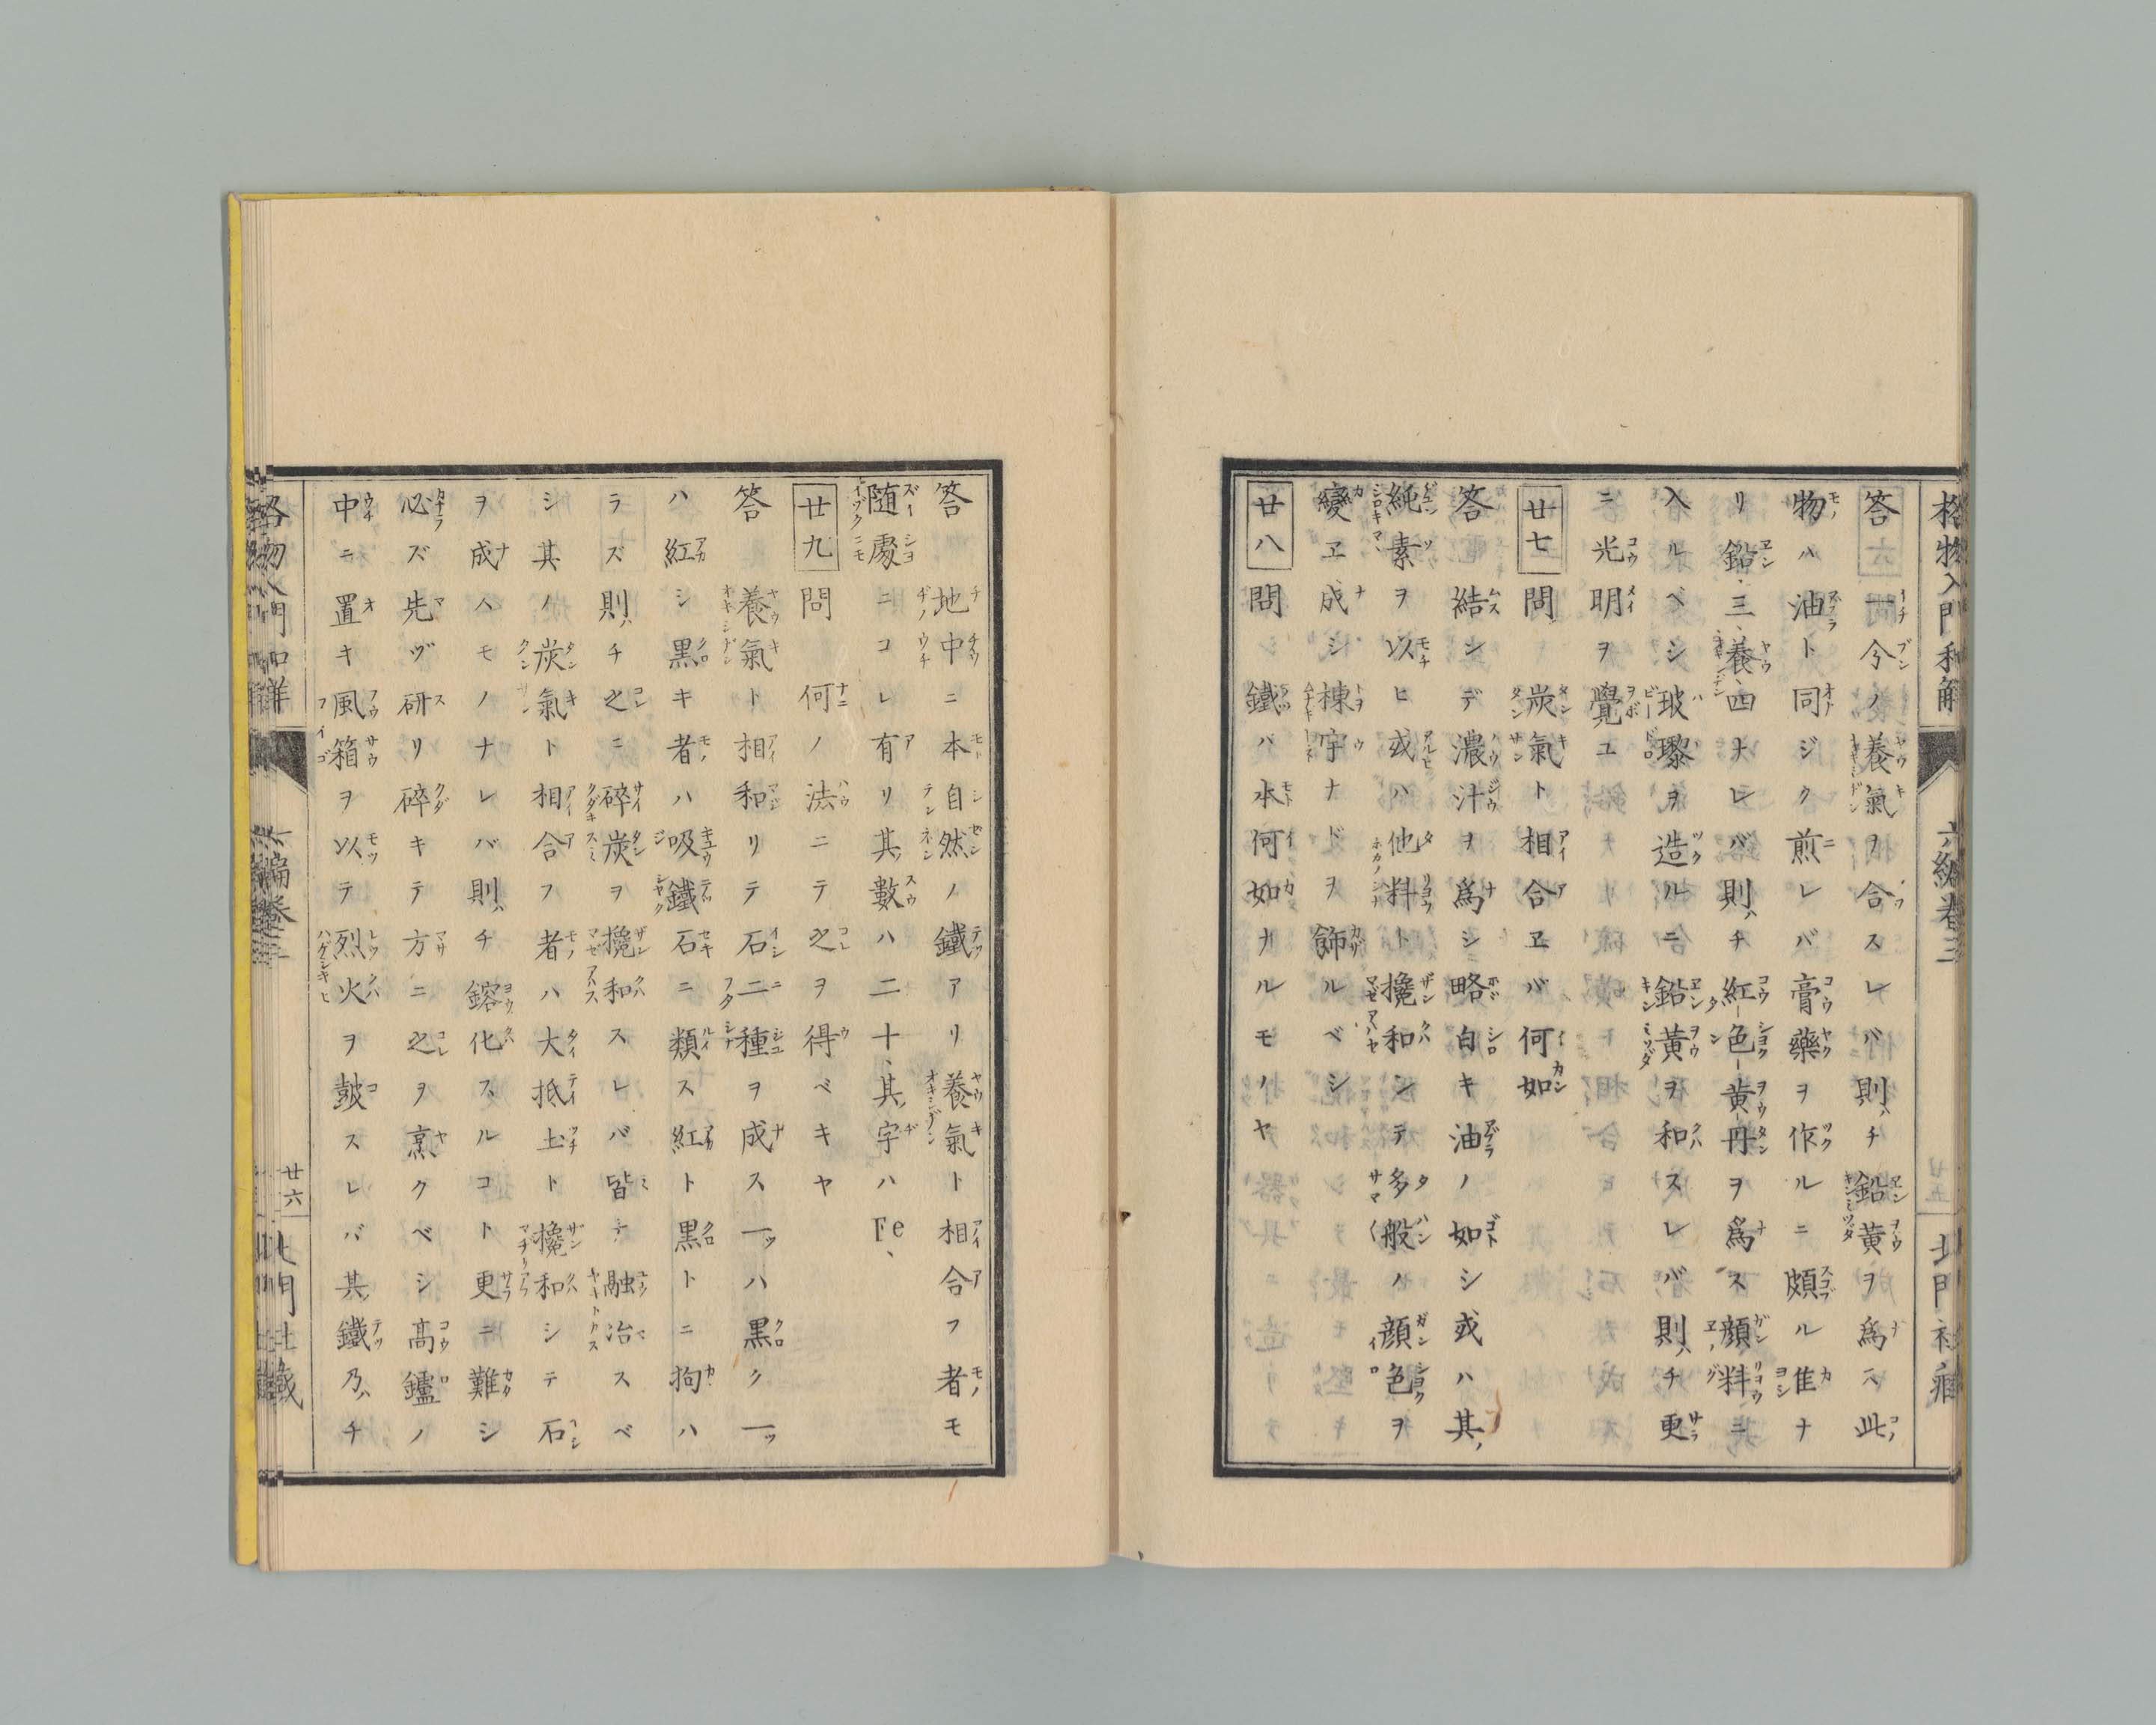 格物入門和解 六編卷三 北門社藏
答 一分ノ養氣ヲ合スレバ則チ鉛黄ヲ爲ス此
物ハ油ト同ジク煎レバ膏藥ヲ作ルニ頗ル佳ナ
リ鉛三養四ナレバ則チ紅色黄丹ヲ爲ス顔料ニ
入ルベシ玻瓈ヲ造ルニ鉛黄ヲ和スレバ則チ更
ニ光明ヲ覺ユ
廿七 問 炭氣ト相合ヱバ何如
答 結シデ濃汁ヲ爲シ略白キ油ノ如シ或ハ其
純素ヲ以ヒ或ハ他料ト攙和シテ多般ノ顔色ヲ
變ヱ成シ棟宇ナドヲ飾ルベシ
廿八 問 鐵ハ本何如ナルモノヤ
答 地中ニ本自然ノ鐵アリ養氣ト相合フ者モ
随處ニコレ有リ其數ハ二十、其字ハFe、
廿九 問 何ノ法ニテ之ヲ得ベキヤ
答 養氣ト相和リテ石二種ヲ成ス一ツハ黒ク一ツ
ハ紅シ黒キ者ハ吸鐵石ニ類ス紅ト黒トニ拘ハ
ラズ則チ之ニ碎炭ヲ攙和スレバ皆テ融冶スベ
シ其ノ炭氣ト相合フ者ハ大抵土ト攙和シテ石
ヲ成ハモノナレバ則チ鎔化スルコト更ニ難シ
必ズ先ヅ研リ碎キテ方ニ之ヲ烹クベシ高鑪ノ
中ニ置キ風箱ヲ以テ烈火ヲ鼓スレバ其鐵乃チ
廿六